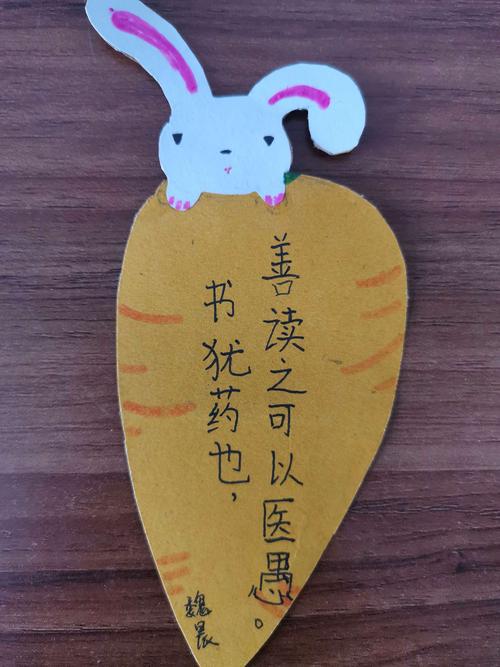 书犹药也，
善读之可以医愚。
魏晨